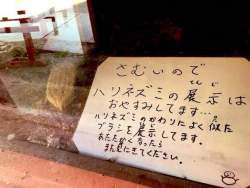 さむいので
ハリネズミの展示は
おやすみしてます…
ハリネズミのかわりによく似た
ブラシを展示してます。
あたたかくなったら
またきてください。